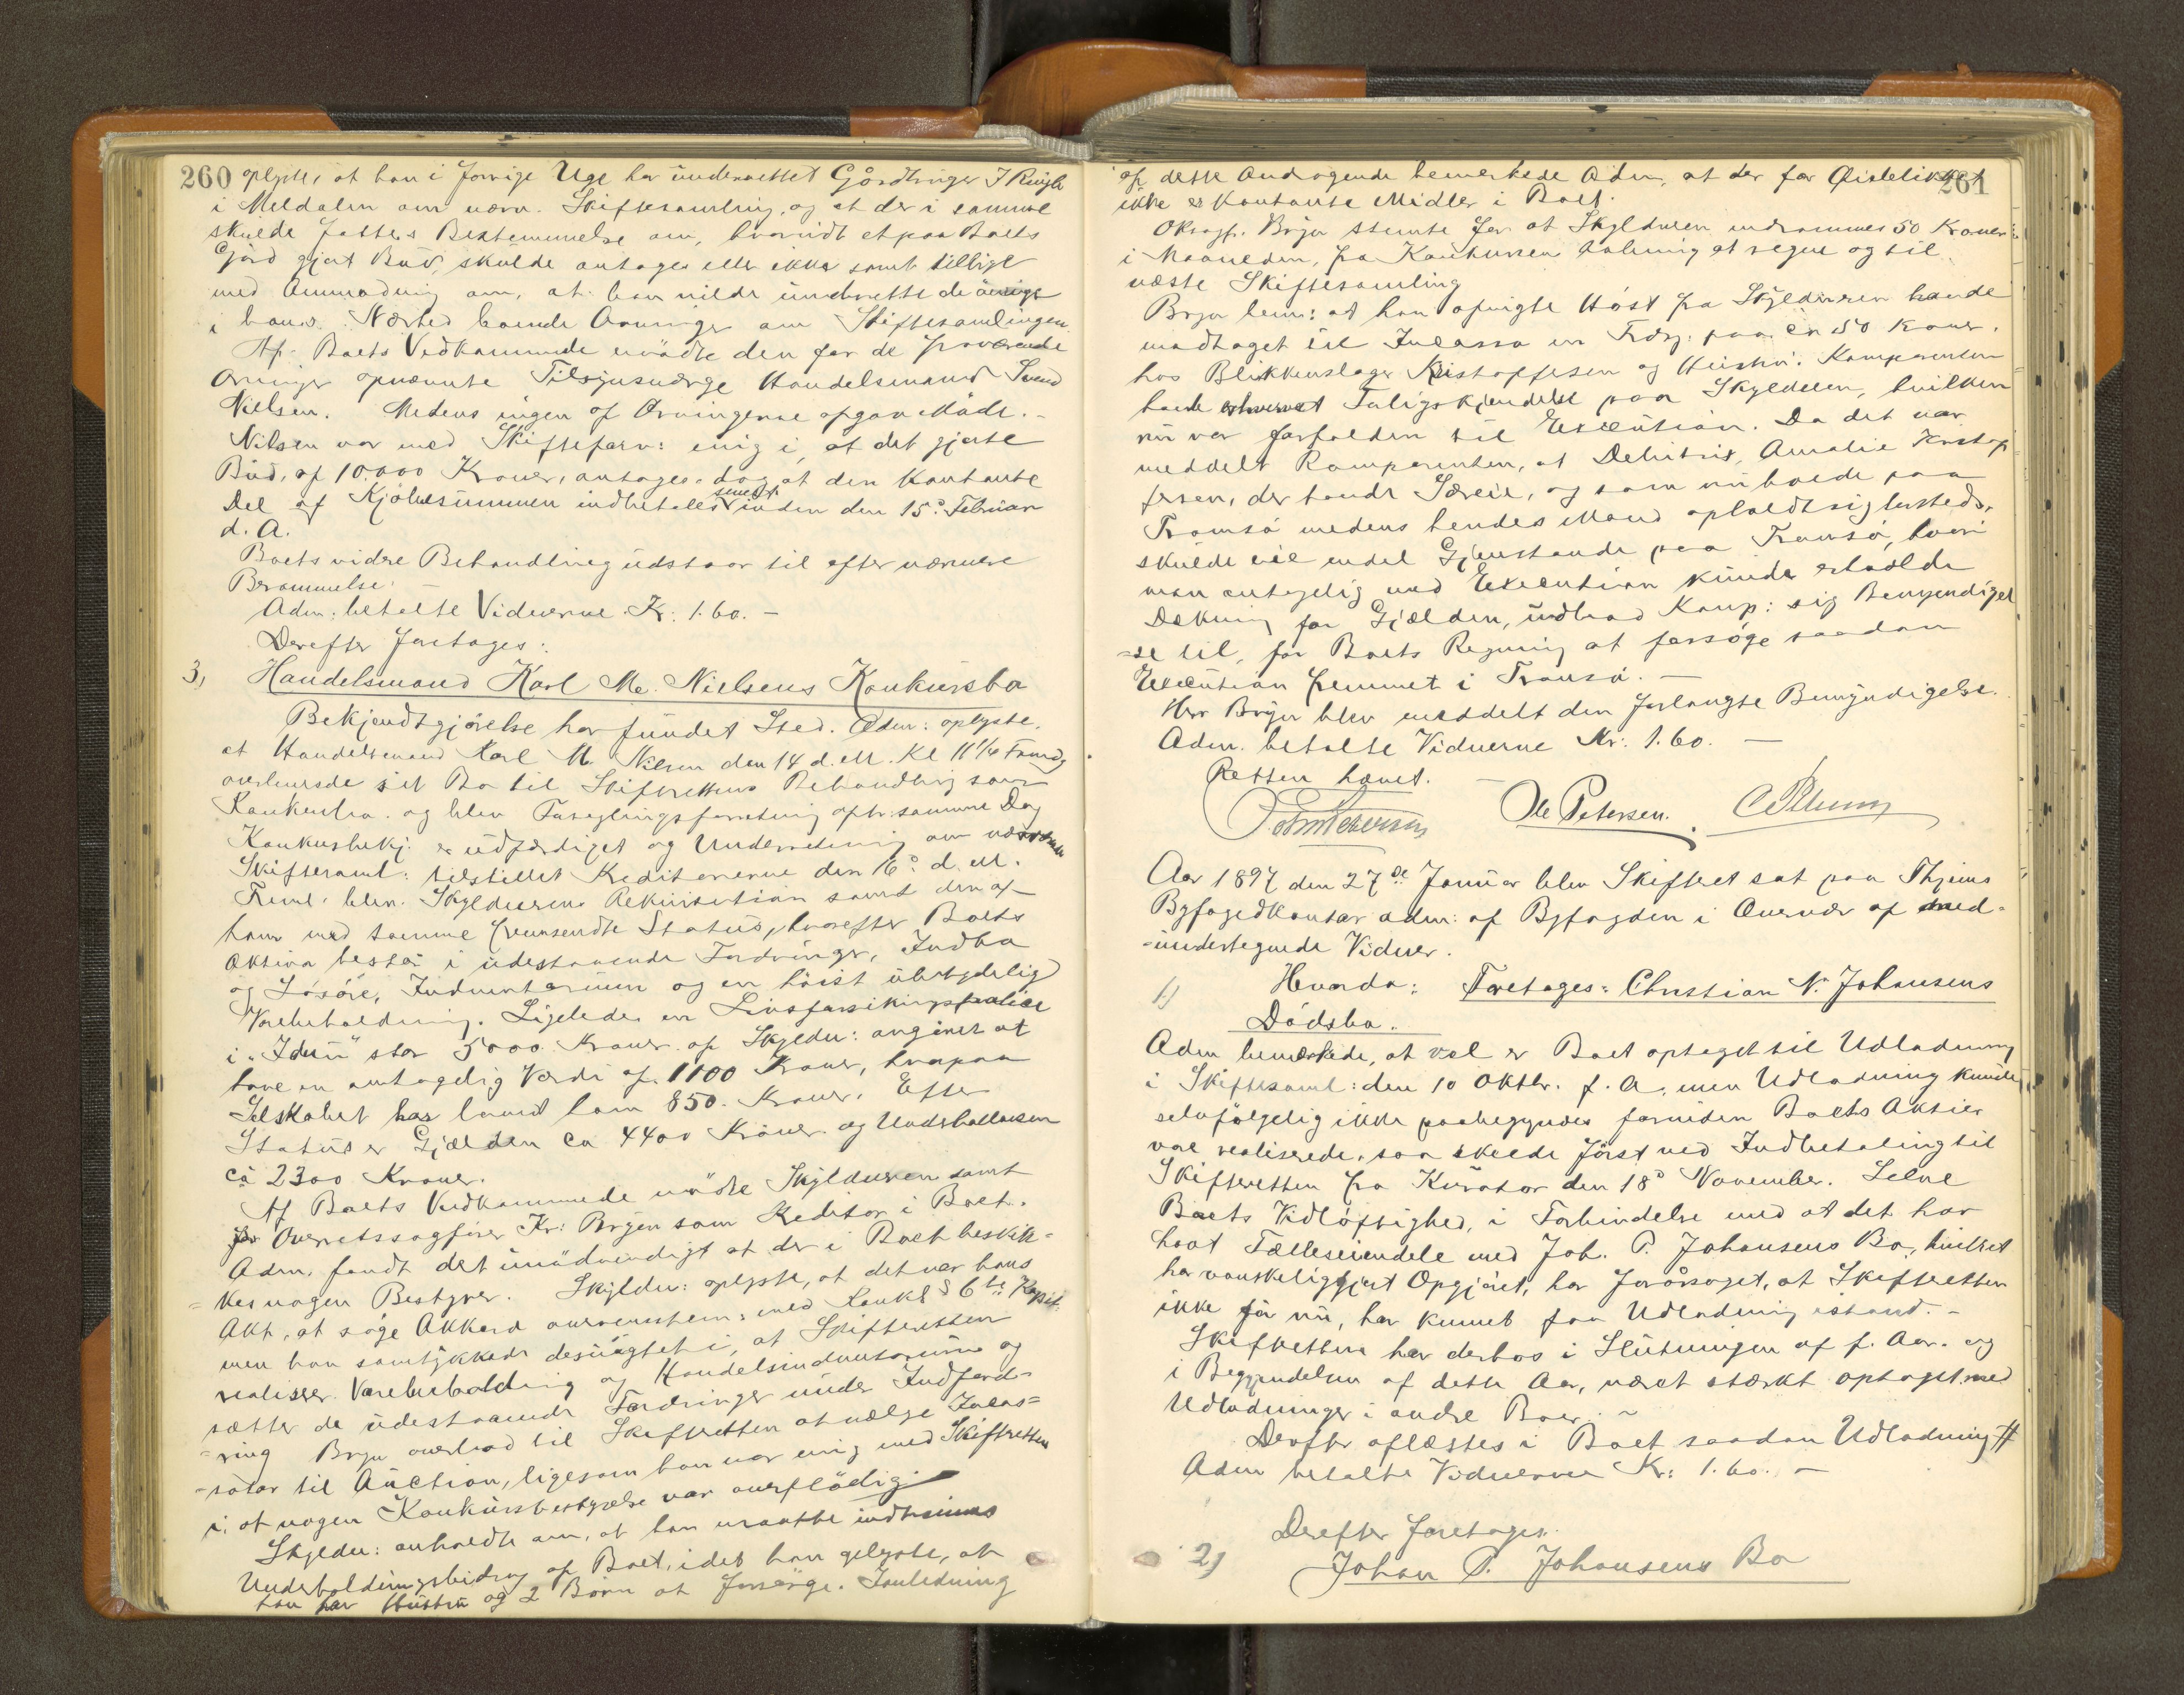 260 oplyste, at han i forrige Uge har underrettet Gårdbruger I Ringli
i Meldalen om nærv. Skiftesamling, og at der i samme
skulde fattes Bestemmelse om, hvorvidt et paa Boets
Gård gjort Bud, skulde antages eller ikke samt tillige
med Anmodning om, at han vilde underrette de øvrige
i hans Nærhed boende Arvinger om Skiftesamlingen.
Af Boets Vedkommende mødte den for de fraværende
Arvinger opnævnte Tilsynsværge Handelsmand Svend
Nielsen. Medens ingen af Arvingerne afgav Møde. -
Nilsen var med Skifteforv: enig i, at det gjorte
Bud, af 10.000 Kroner, antages, dog at den Kontante
Del af Kjøbesummen indbetales senest inden den 15de Februar
d. A.
Boets vidre Behandling udstaar til efter nærmere
Berammelse. -
Adm: betalte Vidnerne Kr. 1.60. -
Derefter foretages:
3, Handelsmand Karl M. Nielsens Konkursbo
Bekjendtgjørelse har fundet Sted. Adm: oplyste,
at Handelsmand Karl M. Nilsen den 14 d. M. Kl 11 1/4 Formdg
overleverede sit Bo til Skifterettens Behandling som
Konkursbo. og blev Forseglingsforretning afh: samme Dag
Konkursbekj. er udfærdiget og Underretning om nærværende
Skiftesaml: tilstillet Kreditorerne den 16de d. M.
Freml. blev Skyldnerens Rekvisition samt den af
ham med samme fremsendte Status, hvorefter Boets
Aktiva består i udestaaende Fordringer, Indbo
og Løsøre, Indventarium og en höist ubetydelig
Varebeholdning. Ligeledes en Livsforsikringspolice
i "Idun" stor 5000 Kroner af Skyldn: angivet at
have en antagelig Værdi af 1100 Kroner, hvorpaa
Selskabet har laant ham 850. Kroner. Efter
Status er Gjælden ca 4400 Kroner og Underballancen
ca 2300 Kroner.
Af Boets Vedkommende mødte Skyldneren samt
for Overretssagfører Kr: Bryn som Kreditor i Boet.
Adm. fandt det unödvendigt at der i Boet beskik-
kes nogen Bestyrer. Skyldn: oplyste, at det var hans
Akt, at søge Akkord overensstem: med Konkl § 6te Kapit.
men han samtykkede desuagtet i, at Skifteretten
realiserer Varebeholdning og Handelsindventarium og
sætter de udestaaende Fordringer under Indford-
ring Bryn overlod til Skifteretten at vælge Inkas-
sator til Auction, ligesom han var enig med Skifteretten
i, at nogen Konkursbestyrelse var overflödig.
Skyldn: anholdt om, at han maatte indrømmes
Underholdningsbidrag af Boet, idet han oplyste, at
han har Hustru og 2 Börn at forsørge. I anledning
261
af dette Andragende bemerkede Adm, at der for Øieblikket
ikke er kontante Midler i Boet.
Oksagf. Bryn stemte for at Skyldneren indrømmes 50 Kroner
i Maaneden, fra Konkursens Aabning at regne og til
næste Skiftesamling
Bryn bem: at han afvigte Høst fra Skyldneren havde
modtaget til Incasso en Fordg: paa ca 150 Kroner.
hos Blikkenslager Kristoffersen og Hustru. Komparenten
havde erhvervet Forligskjendelse paa Skylden, hvilken
nu var forfalden til Execution. Da det var
meddelt Komparenten, at Debitrix, Amalie Kristof
fersen, der havde Særeie, og som nu boede paa
Tromsö medens hendes Mand opholdt sig hersteds,
skulde eie endel Gjenstande paa Tromsö, hvori
man antagelig ved Execution kunde erholde
Dækning for Gjælden, udbad Komp: sig Bemyndigel
-se til, for Boets Regning at forsøge saadan
Execution fremmet i Tromsö. -
Herr Bryn blev meddelt den forlangte Bemyndigelse.
Adm. betalte Vidnerne Kr: 1.60. -
Retten hævet. -
Ole Petersen.
Aar 1897 den 27de Januar blev Skifteret sat paa Thjems
Byfogedkontor adm: af Byfogden i Overvær af med-
-undertegnede Vidner.
1.) Hvorda: Foretages: Christian N. Johansens
Dödsbo.
Adm bemærkede, at vel er Boet optaget til Udlodning
i Skiftesaml: den 10 Oktbr. f. A, men Udlodning kunde
selvfølgelig ikke paabegyndes forinden Boets Aktier
var realiserede, saa skeede først ved Indbetaling til
Skifteretten fra Kurator den 18de November. Selve
Boets Vidløftighed, i Forbindelse med at det har
havt Fælleseiendele med Joh. P. Johansens Bo, hvilket
har vanskeliggjort Opgjøret, har foraarsaget, at Skifteretten
ikke før nu, har kunnet faa Udlodning istand. -
Skifteretten har derhos i Slutningen af f. Aar. og
i Begyndelsen af dette Aar, været stærkt optaget med
Udlodninger i andre Boer. -
Derefter oplæstes i Boet saadan Udlodning #
Adm betalte Vidnerne Kr: 1.60. -
Derefter foretages.
2) Johan P. Johansens Bo